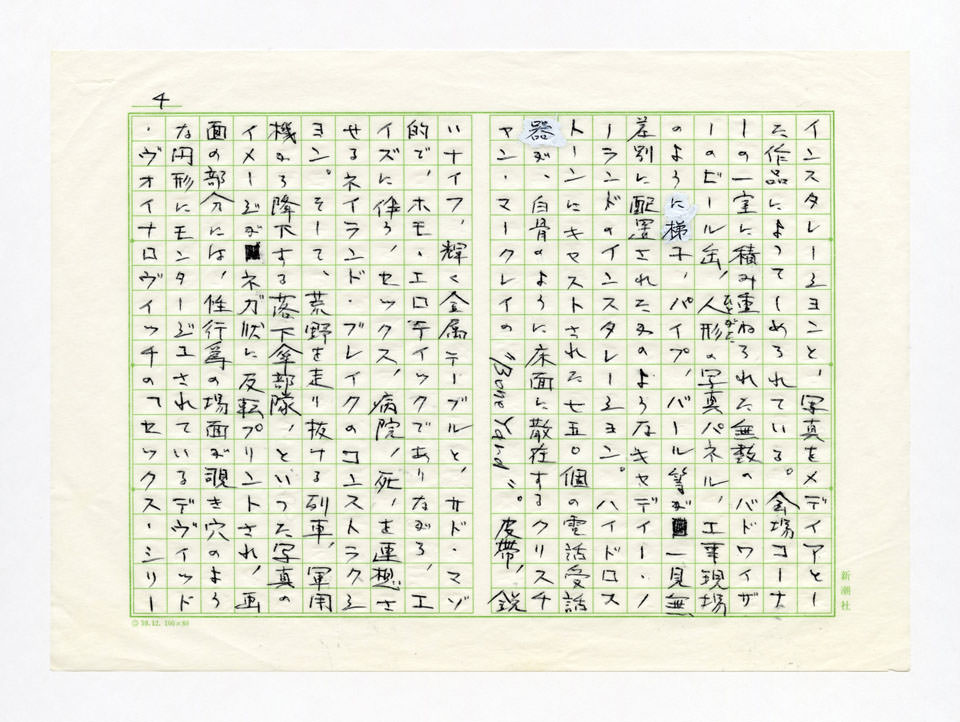 4
インスタレーションと、写真をメディアとし
た作品によってしめられている。会場コーナ
ーの一室に積み重ねられた無数のバドワイザ
ーのビール缶、人形の写真パネル、工事現場
ひとがた
のように梯子、パイプ、バール等が一見無
差別に配置されたかのようなキャディー・ノ
ーランドのインスタレーション。ハイドロス
トーンにキャストされた七五〇個の電話受話
器が、白骨のように床面に散在するクリスチ
ャン・マークレイの "Bone Yard"。皮帯、鋭
いナイフ、輝く金属テーブルと、サド・マゾ
的で、ホモ・エロティックでありながら、エ
イズに伴う、セックス、病院、死、を連想さ
せるネイランド・ブレイクのコンストラクシ
ョン。そして、荒野を走り抜ける列車、軍用
機から降下する落下傘部隊、といった写真の
イメージがネガ状に反転プリントされ、画
面の部分には、性行為の場面が覗き穴のよう
な円形にモンタージュされているデヴィッド
・ヴォイナロヴィッチの「セックス・シリー
新潮社